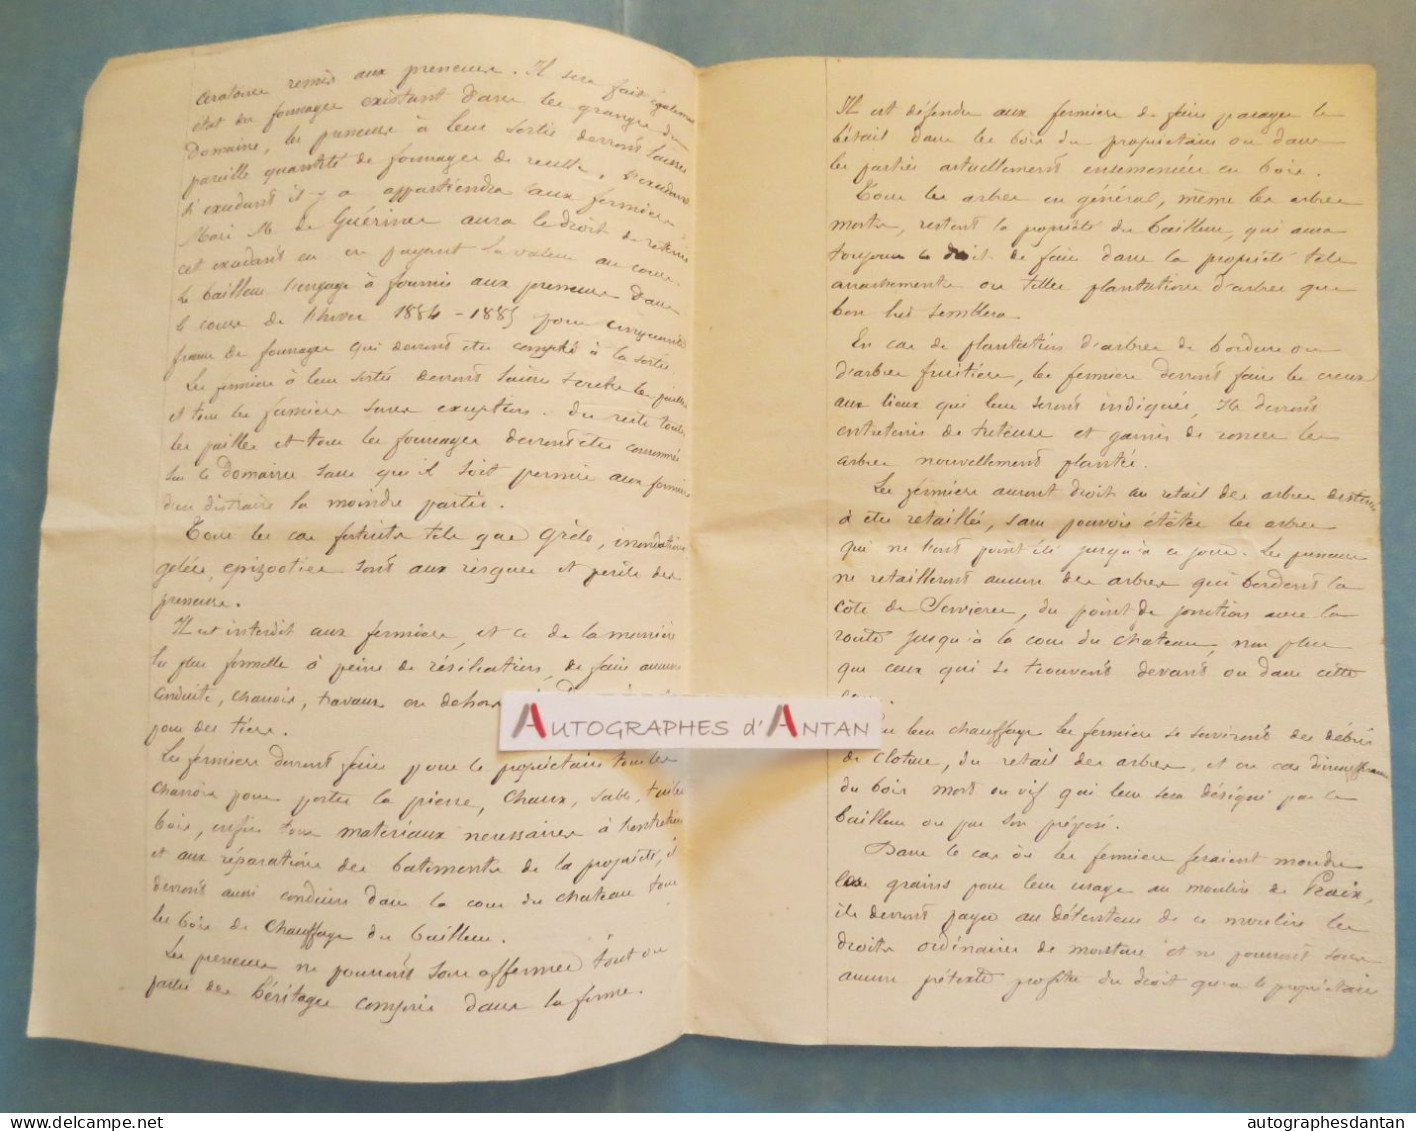 aratoires remis aux preneurs. Il sera fait également
état du fourrages existant dans les granges du
Domaine, les preneurs à leur sortie devront laisser
pareille quantité de fourrages de recette, l'excédant
s'excédant il y a appartiendra aux fermiers
Mais M. de Guérines aura le droit de retenir
cet excédant en en payant la valeur au cours.
Le bailleur s'engage à fournir aux preneurs dans
le cours de l'hiver 1884 - 1885 pour cinquante
francs de fourrages qui devront être comptés à la sortie.
Les fermiers à leur sortie devront laisser toutes les pailles
et tous les fumiers sans exception. Du reste toutes
les pailles et tous les fourrages devront être consommés
sur le Domaine sans qu'il soit permis aux fermiers
d'en distraire la moindre partie.
Tous les cas fortuits tels que grêle, inondation
gelée, épizooties sont aux risques et périls des
preneurs.
Il est interdit aux fermiers, et ce de la manière
la plus formelle à peine de résiliation, de faire aucune
conduite, charrois, travaux en dehors
pour des tiers.
Les fermiers devront faire pour le propriétaire tous les
charrois pour porter la pierre, chaux, sable, tuiles
bois, enfin tous matériaux nécessaires à l'entretien
et aux réparations des batiments de la propriété, il
devront aussi conduire dans la cour du chateau tous
les bois de chauffage du bailleur.
Les preneurs ne pourront sous affermer tout ou
partie des héritages compris dans la ferme.
Il est défendu aux fermiers de faire pacager le
bétail dans les bois du propriétaire ou dans
les parties actuellement ensemencées en bois.
Tous les arbres en général, même les arbres
morts, restent la propriété du bailleur, qui aura
toujours le droit de faire dans la propriété tels
arrachements ou telles plantations d'arbres que
bon lui semblera.
En cas de plantation d'arbres de bordure ou
d'arbres fruitiers, les fermiers devront faire les creux
aux lieux qui leur seront indiqués, Ils devront
entretenir de tuteurs et garnir de ronces les
arbres nouvellement plantés.
Les fermiers auront droit au retail des arbres destinés
à être retaillés, sans pouvoir étêter les arbres
qui ne l'ont point été jusqu'à ce jour. Les preneurs
ne retailleront aucun des arbres qui bordent la
côte de Servières, du point de jonction avec la
route jusqu'à la cour du chateau non plus
que ceux qui se trouvent devant ou dans cette
leur chauffage les fermiers se serviront des débris
de cloture, du retail des arbres, et en cas d'insuffisance
du bois mort ou vif qui leur sera désigné par le
bailleur ou par son préposé.
Dans le cas où les fermiers feraient moudre
leurs grains pour leur usage au moulin de Roaix,
ils devront payer au détenteur de ce moulin les
droits ordinaires de mouture et ne pourront sous
aucun prétexte profiter du droit qu'a le propriétaire
AUTOGRAPHES d'ANTAN
delcampe.net
autographesdantan